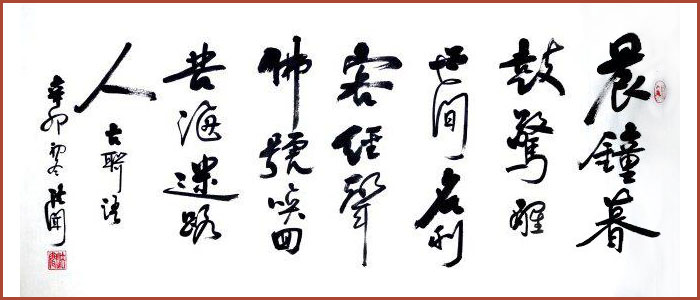 晨鐘暮
鼓驚醒
世間名利
客經聲
佛號喚回
苦海迷路
人
古聯語
辛卯初冬